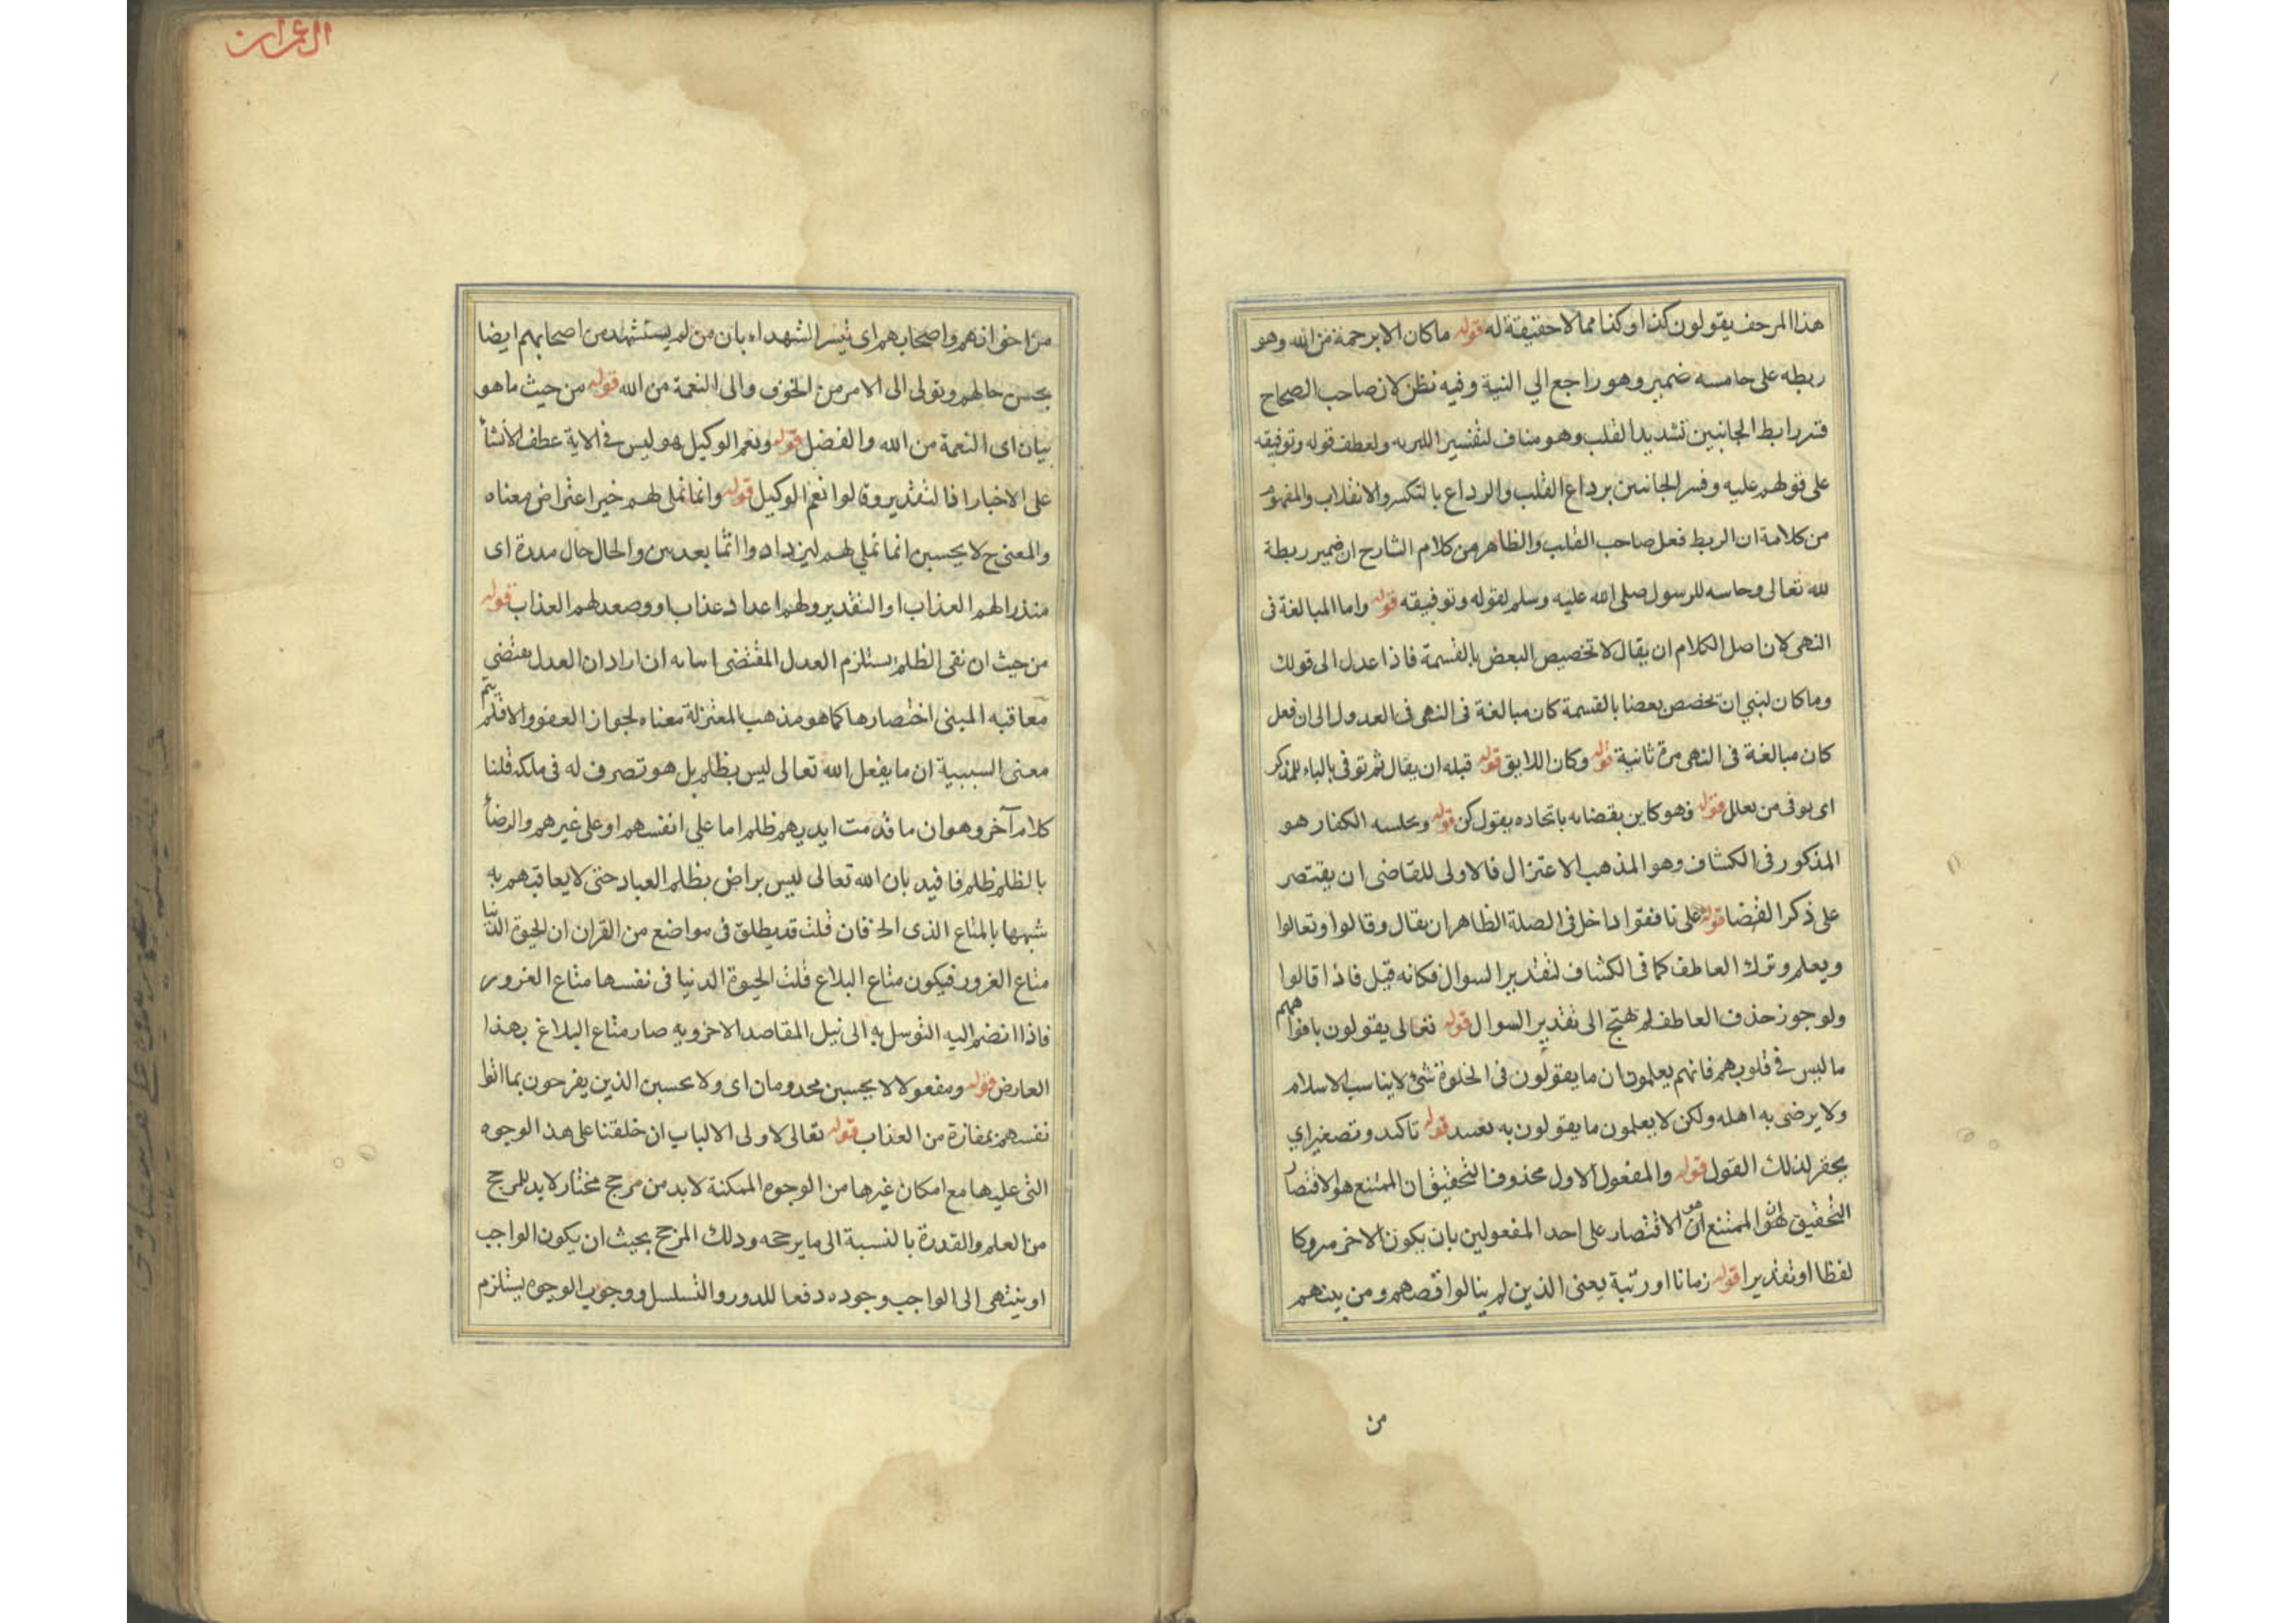 هذا المرجف يقولون كذا وكذا مما لا حقيقة له قوله ما كان الا برحمة من الله وهو
ربطه على جاسه ضمير وهو راجع الي النية وفيه نظر لان صاحب الصحاح
فسر رابط الجانبين تشديد القلب وهو مناف لتفسير ولعطف قوله وتوفيقه
على قولهم عليه وفسر الجانبين برداع القلب والرداع بالتكسر والانقلاب والمفهوم
من كلامة ان الربط فعل صاحب القلب والظاهر من كلام الشارح ان ضمير ربطة
لله تعالى وجاسه للرسول صلى الله عليه وسلم لقوله وتوفيقه قوله واما المبالغة في
النهى لان اصل الكلام ان يقال لا تخصيص البعض بالقسمة فاذا عدل الى قولك
وما كان لنبي ان تخصص بعضا بالقسمة كان مبالغة فى النهى فى العدول الى ان فعل
كان مبالغة فى النهى مرة ثانية قوله وكان اللايق قوله قبله ان يقال ثم توفى بالياء للمذكر
اى يوفى من يعلل قوله فهو كاين بقضائه باتحاده بقول كن قوله الكفار هو
المذكور فى الكشاف وهو المذهب الاعتزال فالاولى للقاضى ان يقتصر
على ذكر القضا قوله على نافقوا داخل فى الصلة الظاهر ان يقال وقالوا وتعالوا
ويعلم وترك العاطف كما فى الكشاف لتقدير السوال فكانه قيل فاذا قالوا
ولو جوز حذف العاطف لم يحتج الى تقدير السوال قوله تعالى يقولون بافواههم
ما ليس فى قلوبهم فانهم يعلمون ان ما يقولون فى الخلوة شئ لا يناسب الاسلام
ولا يرضى به اهله ولكن لا يعلمون ما يقولون به قوله تاكيد وتصغير اي
يحقر لذلك القول قوله والمفعول الاول محذوف التحقيق ان الممتنع هو الاقتصار
التحقيق هو ان الممتنع هو الاقتصار على احد المفعولين بان يكون الاخر متروكا
لفظا او تقديرا قوله زمانا او رتبة يعنى الذين لم ينالوا قصهم ومن بينهم
من
ال عمران
من اخوانهم واصحابهم اى تيسر الشهداء بان من لم يستشهد من اصحابهم ايضا
بحسن حالهم وتولى الى الامر من الخوف والى النعمة من الله قوله من حيث ما هو
بيان اى النعمة من الله والفضل قوله ونعم الوكيل هو ليس فى الاية عطف الانشأ
على الاخبار اذ التقدير وقالوا نعم الوكيل قوله وانما نملى لهم خير اعتراض معناه
والمعنى ح لا يحسبن انما نملي لهم ليزدادوا اثما بعد من والحال حال مدرة اى
منذرا لهم العذاب او التقدير ولهم اعداد عذاب او وصعد لهم العذاب قوله
من حيث ان نفى الظلم يستلزم العدل المقتضى اسابه ان اراد ان العدل يقتضي
معاقبه المبنى اختصارها كما هو مذهب المعتزلة معناه لجواز العفو والا فلم يتم
معنى السببية ان ما يفعل الله تعالى ليس بظلم بل هو تصرف له فى ملكه قلنا
كلام آخر وهو ان ما قدمت ايديهم ظلم اما على انفسهم او على غيرهم والرضأ
بالظلم ظلم فافيد بان الله تعالى ليس براض بظلم العباد حتى لا يعاقبهم به
شبهها بالمتاع الذى الخ فان قلت قد يطلق فى مواضع من القران ان الحيوة الدنيا
متاع الغرور فيكون متاع البلاغ قلت الحيوة الدنيا فى نفسها متاع الغرور
فاذا انضم اليه التوسل به الى نيل المقاصد الاخرويه صار متاع البلاغ بهذا
العارض قوله ومفعولا لا يحسبن محدومان اى ولا يحسبن الذين يفرحون بما اتوا
نفسهم بمفازة من العذاب قوله تعالى لاولى الالباب ان خلقتنا على هذ الوجوه
التى عليها مع امكان غيرها من الوجوه الممكنة لا بد من مرجح مختار لا بد للمرجح
من العلم والقدرة بالنسبة الى ما يرجحه وذلك المرجح بحيث ان يكون الواجب
او ينتهى الى الواجب وجوده دفعا للدور والتسلسل ووجوب الوجوه يستلزم